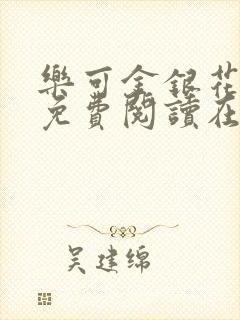 樂可金銀花
免費閱讀在
吴建绵